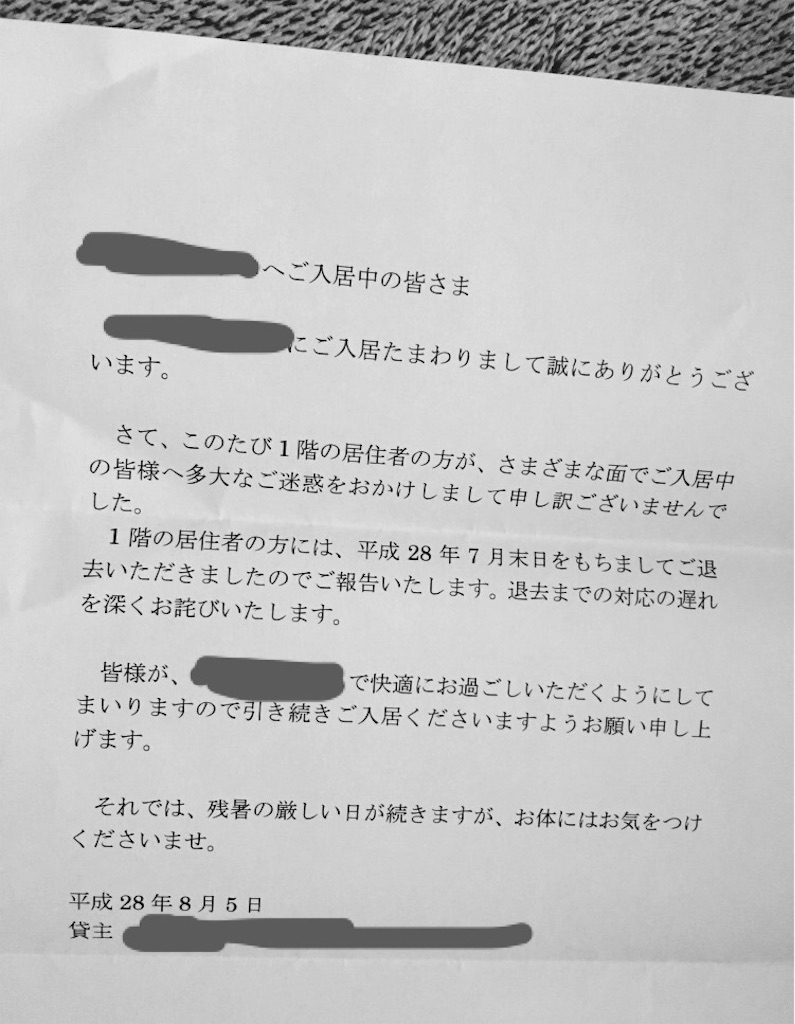 へご入居中の皆さま
にご入居たまわりまして誠にありがとうござ
います。
さて、このたび1階の居住者の方が、さまざまな面でご入居中
の皆様へ多大なご迷惑をおかけしまして申し訳ございませんで
した。
1階の居住者の方には、平成28年7月末日をもちましてご退
去いただきましたのでご報告いたします。退去までの対応の遅れ
を深くお詫びいたします。
皆様が、で快適にお過ごしいただくようにして
まいりますので引き続きご入居くださいますようお願い申し上
げます。
それでは、残暑の厳しい日が続きますが、お体にはお気をつけ
くださいませ。
平成28年8月5日
貸主